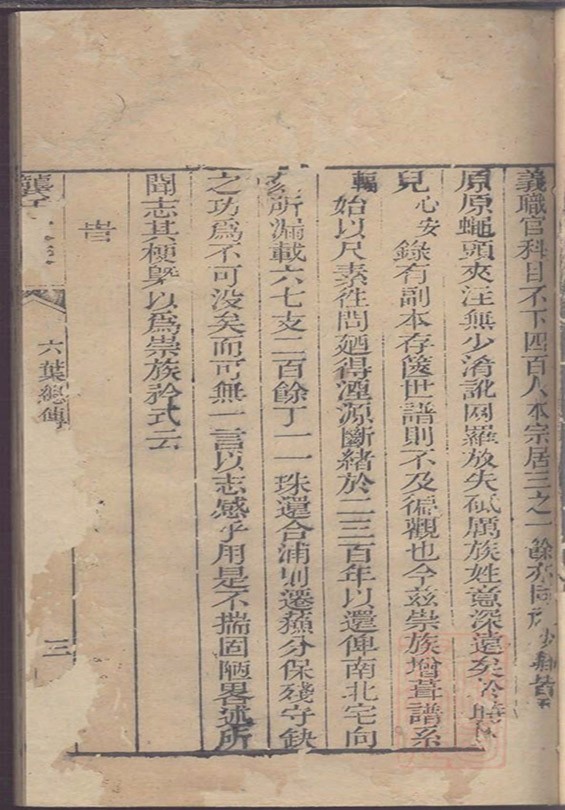 義職官科目不下四百人本宗居三之一餘亦同
原原蠅頭夾注無少淆訛网羅放失砥厲族姓意深遠矣
兒心安錄有副本存篋世譜則不及徧觀也今茲崇族增葺譜系
輶始以尺素徃問廼得湮源斷緒於二三百年以還俾南北宅向
所漏載六七支二百餘丁一一珠還合浦則遷蘓分保殘守缺
之功爲不可没矣而可無一言以志感乎用是不揣固陋畧述所
聞志其梗槩以爲崇族矜式云
龔
六葉總傳
三